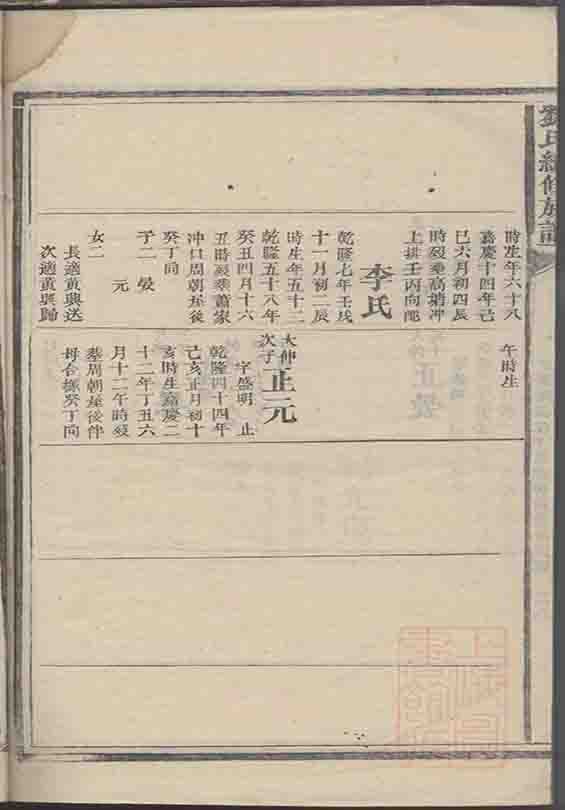 劉氏續修族譜
時生年六十八
嘉慶十四年己
巳六月初四辰
時歿葬高梘冲
上拱壬丙向配
李氏
乾隆七年壬戌
十一月初二辰
時生年五十二
乾隆五十八年
癸丑四月十六
丑時歿葬蕭家
冲口周朝垤後
癸丁向
子二 晏
元
女二
長適黃興送
次適黃興歸
午時生
大仲
次子
正元
字盛明 止
乾隆四十四年
己亥正月初十
亥時生嘉慶二
十二年丁丑六
月十二午時歿
葬周朝垤後伴
母合塚癸丁向
上海圖書館藏